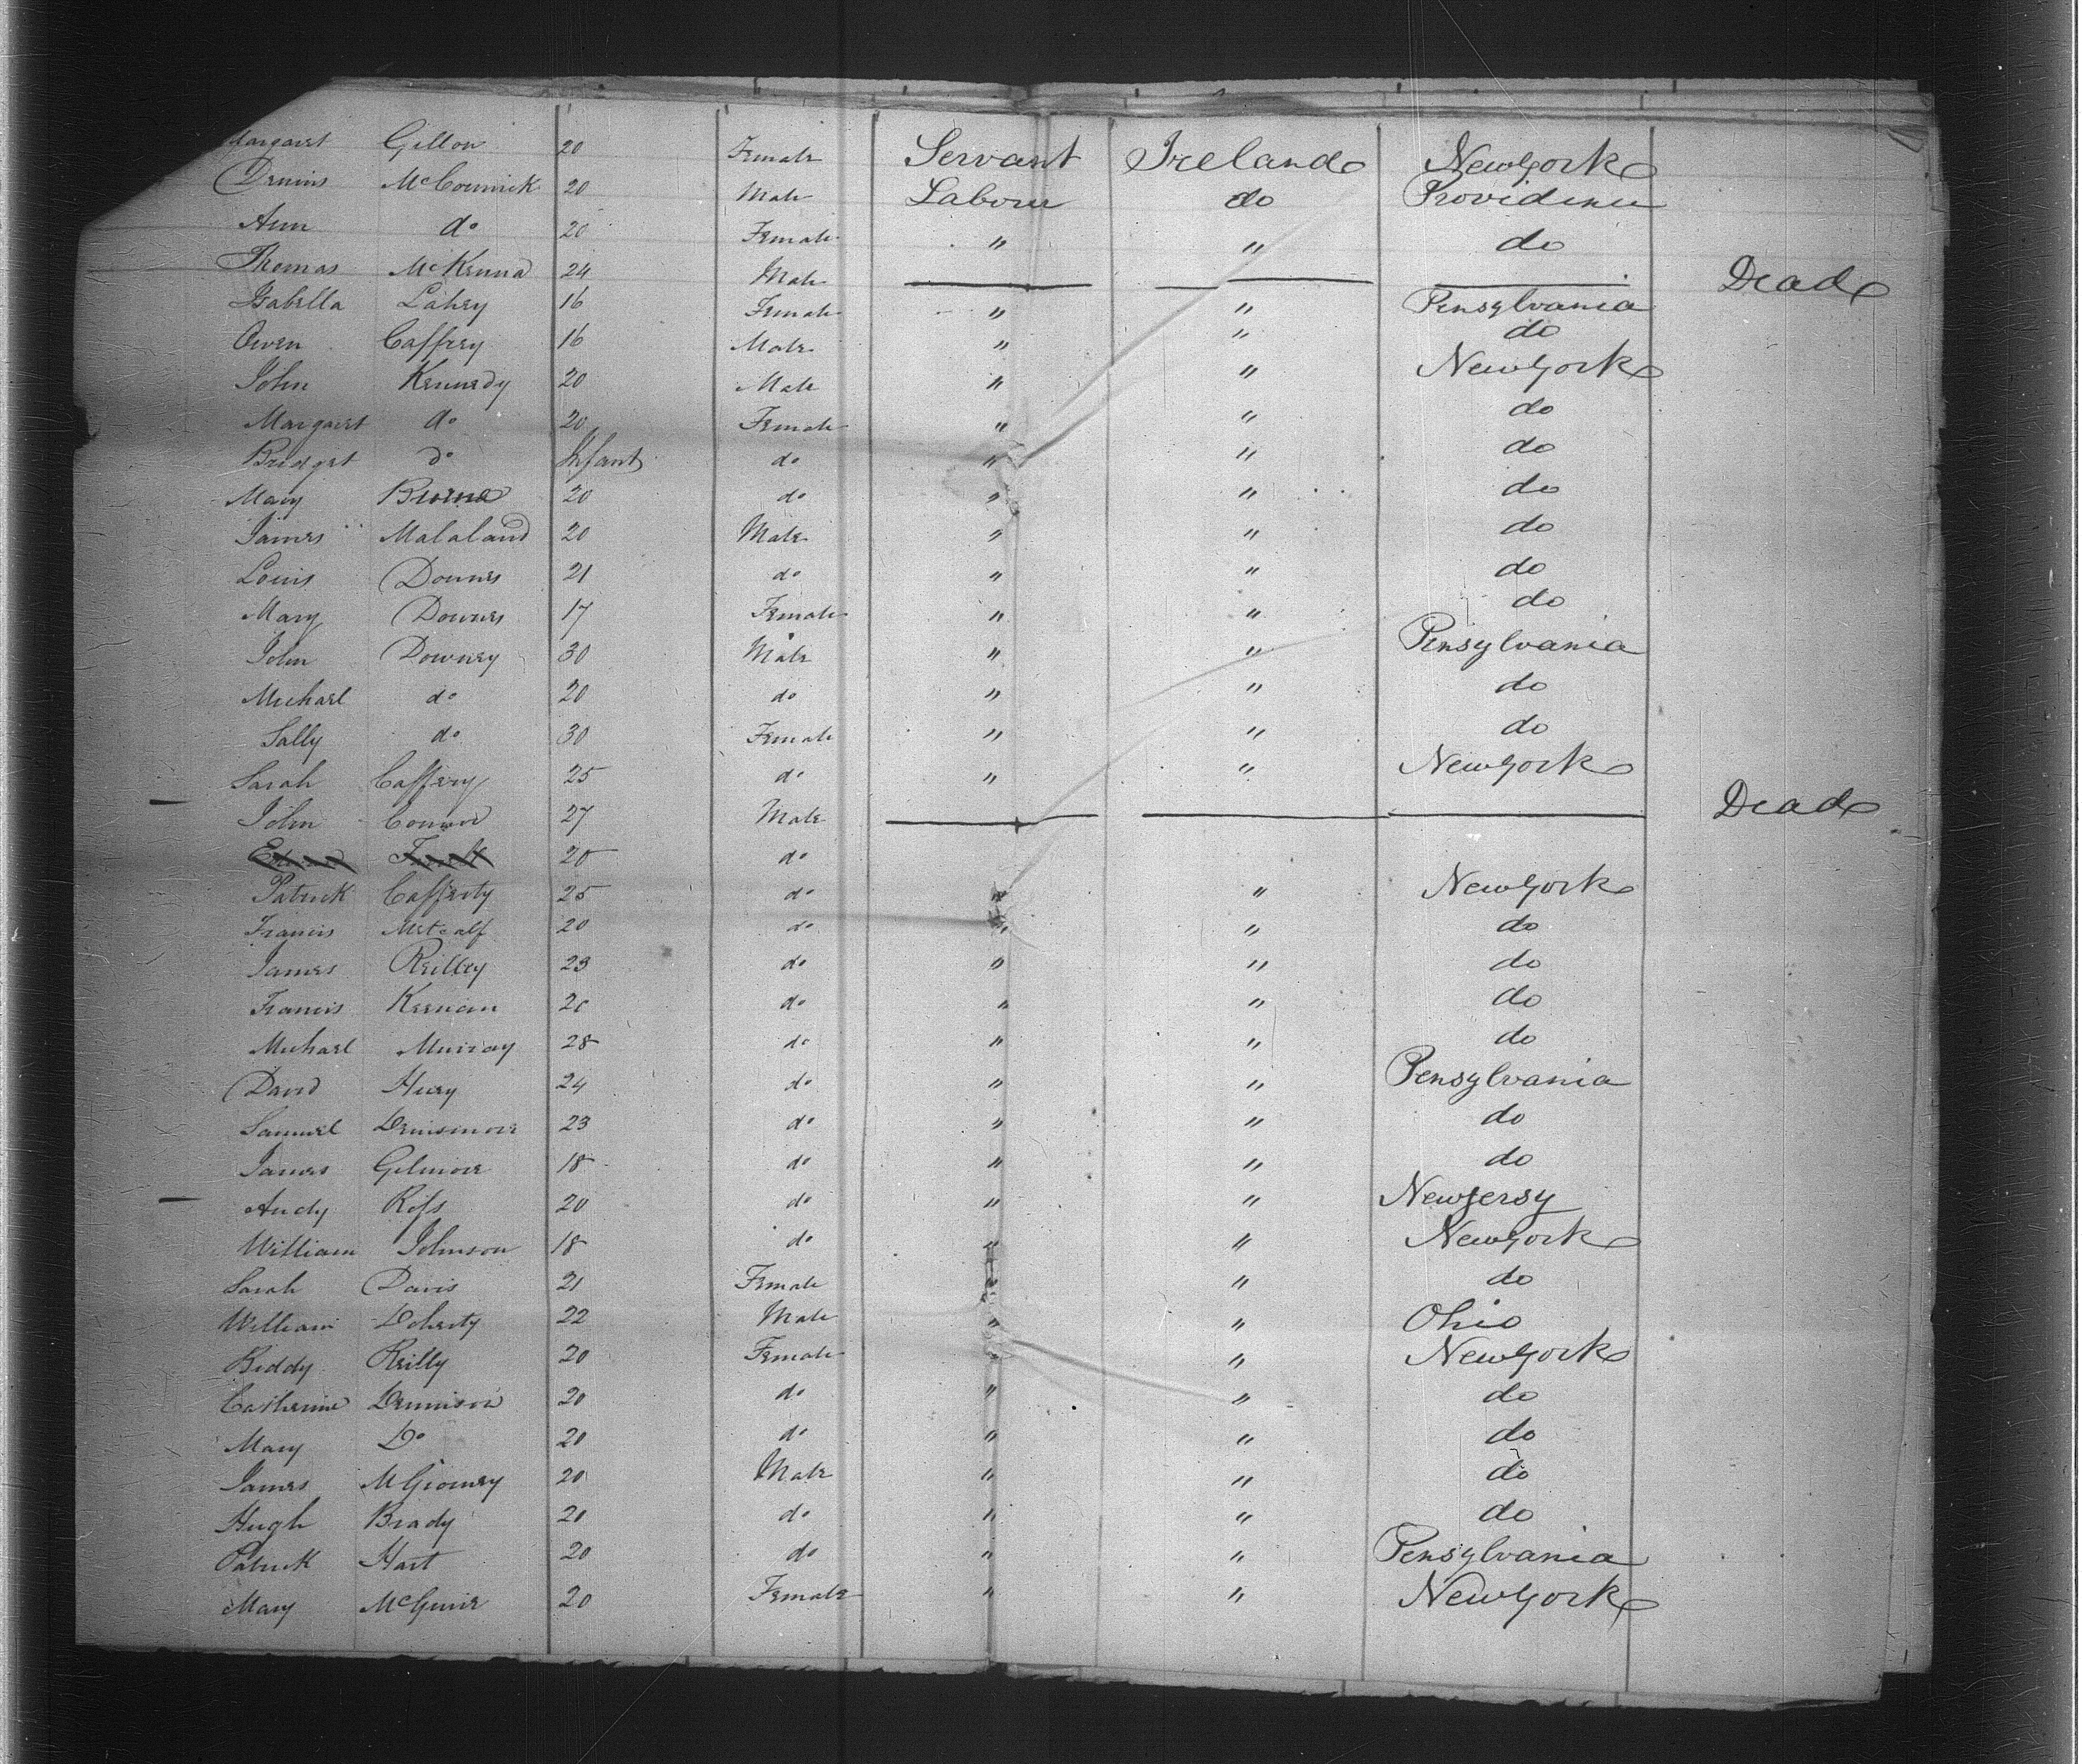 Margaret Gillon 20 Female Servant Ireland New York
Dennis McCormick 20 Male Labour do Providence
Ann do 20 Female " " do
Thomas McKenna 24 Male Dead
Isabella Lahey 16 Female " " Pensylvania
Owen Caffrey 16 Male " " do
John Kennedy 20 Male " " New York
Margaret do 20 Female " " do
Bridget do Infant do " " do
Mary 20 do " " do
James Malaland 20 Male " " do
Louis Downes 21 do " " do
Mary Downes 17 Female " " do
John Downey 30 Male " " Pensylvania
Michael do 20 do " " do
Sally do 30 Female " " do
Sarah Caffery 25 do " " New York
John Connor 27 Male Dead
20 do
Patrick Cafferty 25 do " " New York
Francis Metcalf 20 do " " do
James Reilley 23 do " " do
Francis Kernan 20 do " " do
Michael Murray 28 do " " do
David Henry 24 do " " Pensylvania
Samuel Densmore 23 do " " do
James Gilmore 18 do " " do
Andy 20 do " " New Jersy
William Johnson 18 do " " New York
Sarah Davis 21 Female " " do
William Doherty 22 Male " " Ohio
Biddy Reilly 20 Female " " New York
Catherine Dennison 20 do " " do
Mary Do 20 do " " do
James 20 Male " " do
Hugh Brady 20 do " " do
Patrick Hart 20 do " " Pensylvania
Mary McGuire 20 Female " " New York